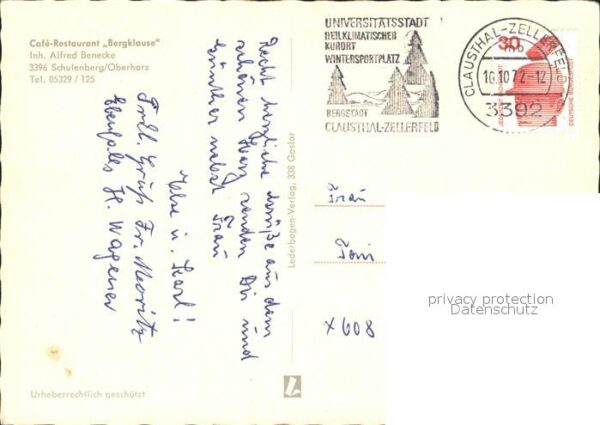 Café-Restaurant „Bergklause"
Inh. Alfred Benecke
3396 Schulenberg/Oberharz
Tel. 05329 / 125
UNIVERSITÄTSSTADT
HEILKLIMATISCHER
KURORT
WINTERSPORTPLATZ
BERGSTADT
CLAUSTHAL-ZELLERFELD
CLAUSTHAL-ZELLERFELD
16.10.72-12
3392
30
Recht herzliche Grüße aus dem
schönen Harz senden Dir und
Günther nebst Frau
Ilse u. Karl!
Frdl. Gruß Fr. Moritz
Ebenfalls H. Wagener
Lederbogen-Verlag, 338 Goslar
Frau
Toni
x 608
privacy protection
Datenschutz
Urheberrechtlich geschützt